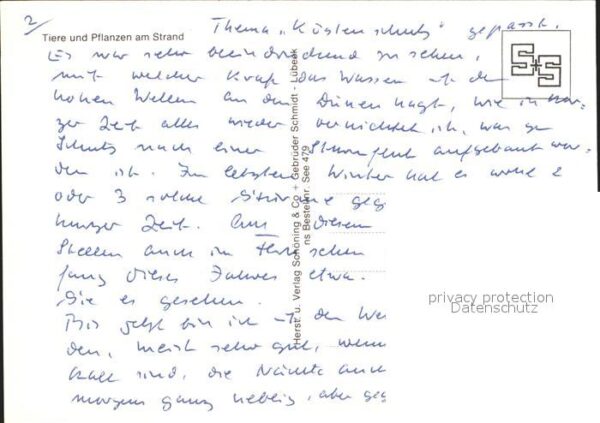 2/
Thema „Küstenschutz" gepasst.
Tiere und Pflanzen am Strand
Es war sehr beeindruckend zu sehen,
mit welcher Kraft das Wasser + die
hohen Wellen an den Dünen nagt, wie in kur-
zer Zeit alles wieder vernichtet ist, was zum
Schutz nach einer Sturmflut aufgebaut wor-
den ist. Im letzten Winter hat es wohl 2
oder 3 solche Stürme geg
kurzer Zeit. Aus diesem
Stellen auch im Fernsehen
fang dieses Jahres etwa
Sie es gesehen.
Bis jetzt bin ich + den We
den, meist sehr gut, wenn
kalt sind, die Nächte auch
morgens ganz neblig, aber geg
Herst. u. Verlag Schöning & Co + Gebrüder Schmidt - Lübeck
ns Bestellnr. See 479
S+S
privacy protection
Datenschutz